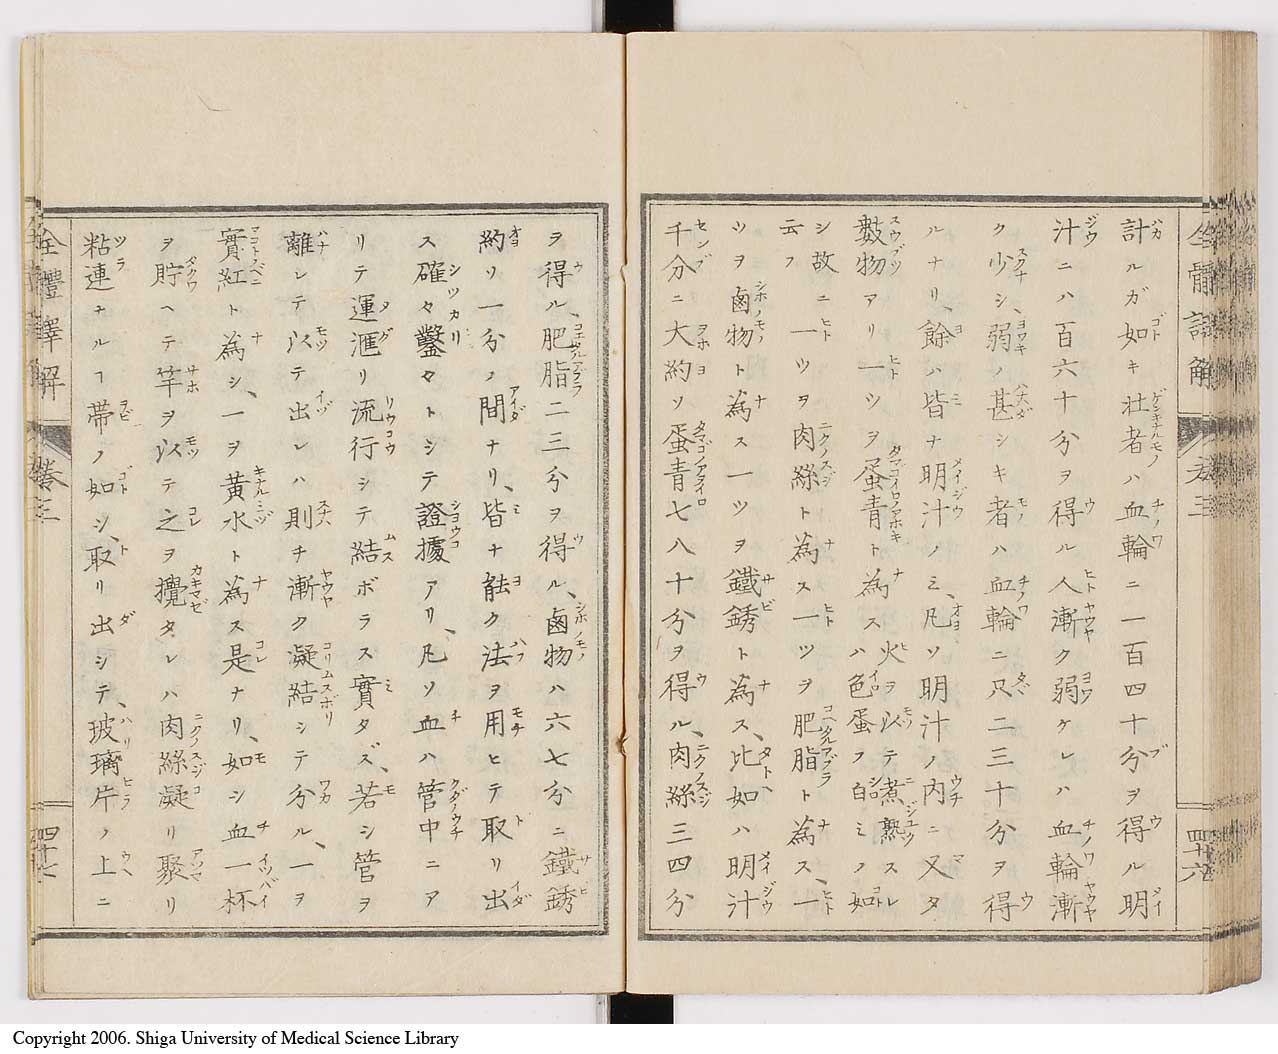 計ルガ如キ壮者ハ血輪ニ一百四十分ヲ得ル明
汁ニハ百六十分ヲ得ル人漸ク弱ケレハ血輪漸
ク少シ、弱ノ甚シキ者ハ血輪ニ只二三十分ヲ得
ルナリ、餘ハ皆ナ明汁ノミ、凡ソ明汁ノ内ニ又タ
數物アリ一ツヲ蛋青ト為ス火ヲ以テ煮熟スレハ色蛋ノ白ミノ如
シ故ニ云フ一ツヲ肉絲ト為ス一ツヲ肥脂ト為ス、一
ツヲ鹵物ト為ス一ツヲ鐵銹ト為ス、比如ハ明汁
千分ニ大約ソ蛋青七八十分ヲ得ル、肉絲三四分
全體譯解 卷三 四十六
ヲ得ル、肥脂二三分ヲ得ル、鹵物ハ六七分ニ鐵銹
約リ一分ノ間ナリ、皆ナ能ク法ヲ用ヒテ取リ出
ス確々鑿々トシテ證據アリ、凡ソ血ハ管中ニア
リテ運滙リ流行シテ結ボラス實タズ、若シ管ヲ
離レテ以テ出レハ則チ漸ク凝結シテ分ル、一ヲ
實紅ト為シ、一ヲ黃水ト為ス是ナリ、如シ血一杯
ヲ貯ヘテ竿ヲ以テ之ヲ攪タレハ肉絲凝リ聚リ
粘連ナルヿ帯ノ如シ、取リ出シテ、玻璃片ノ上ニ
全體譯解 卷三 四十七
Copyright 2006. Shiga University of Medical Science Library